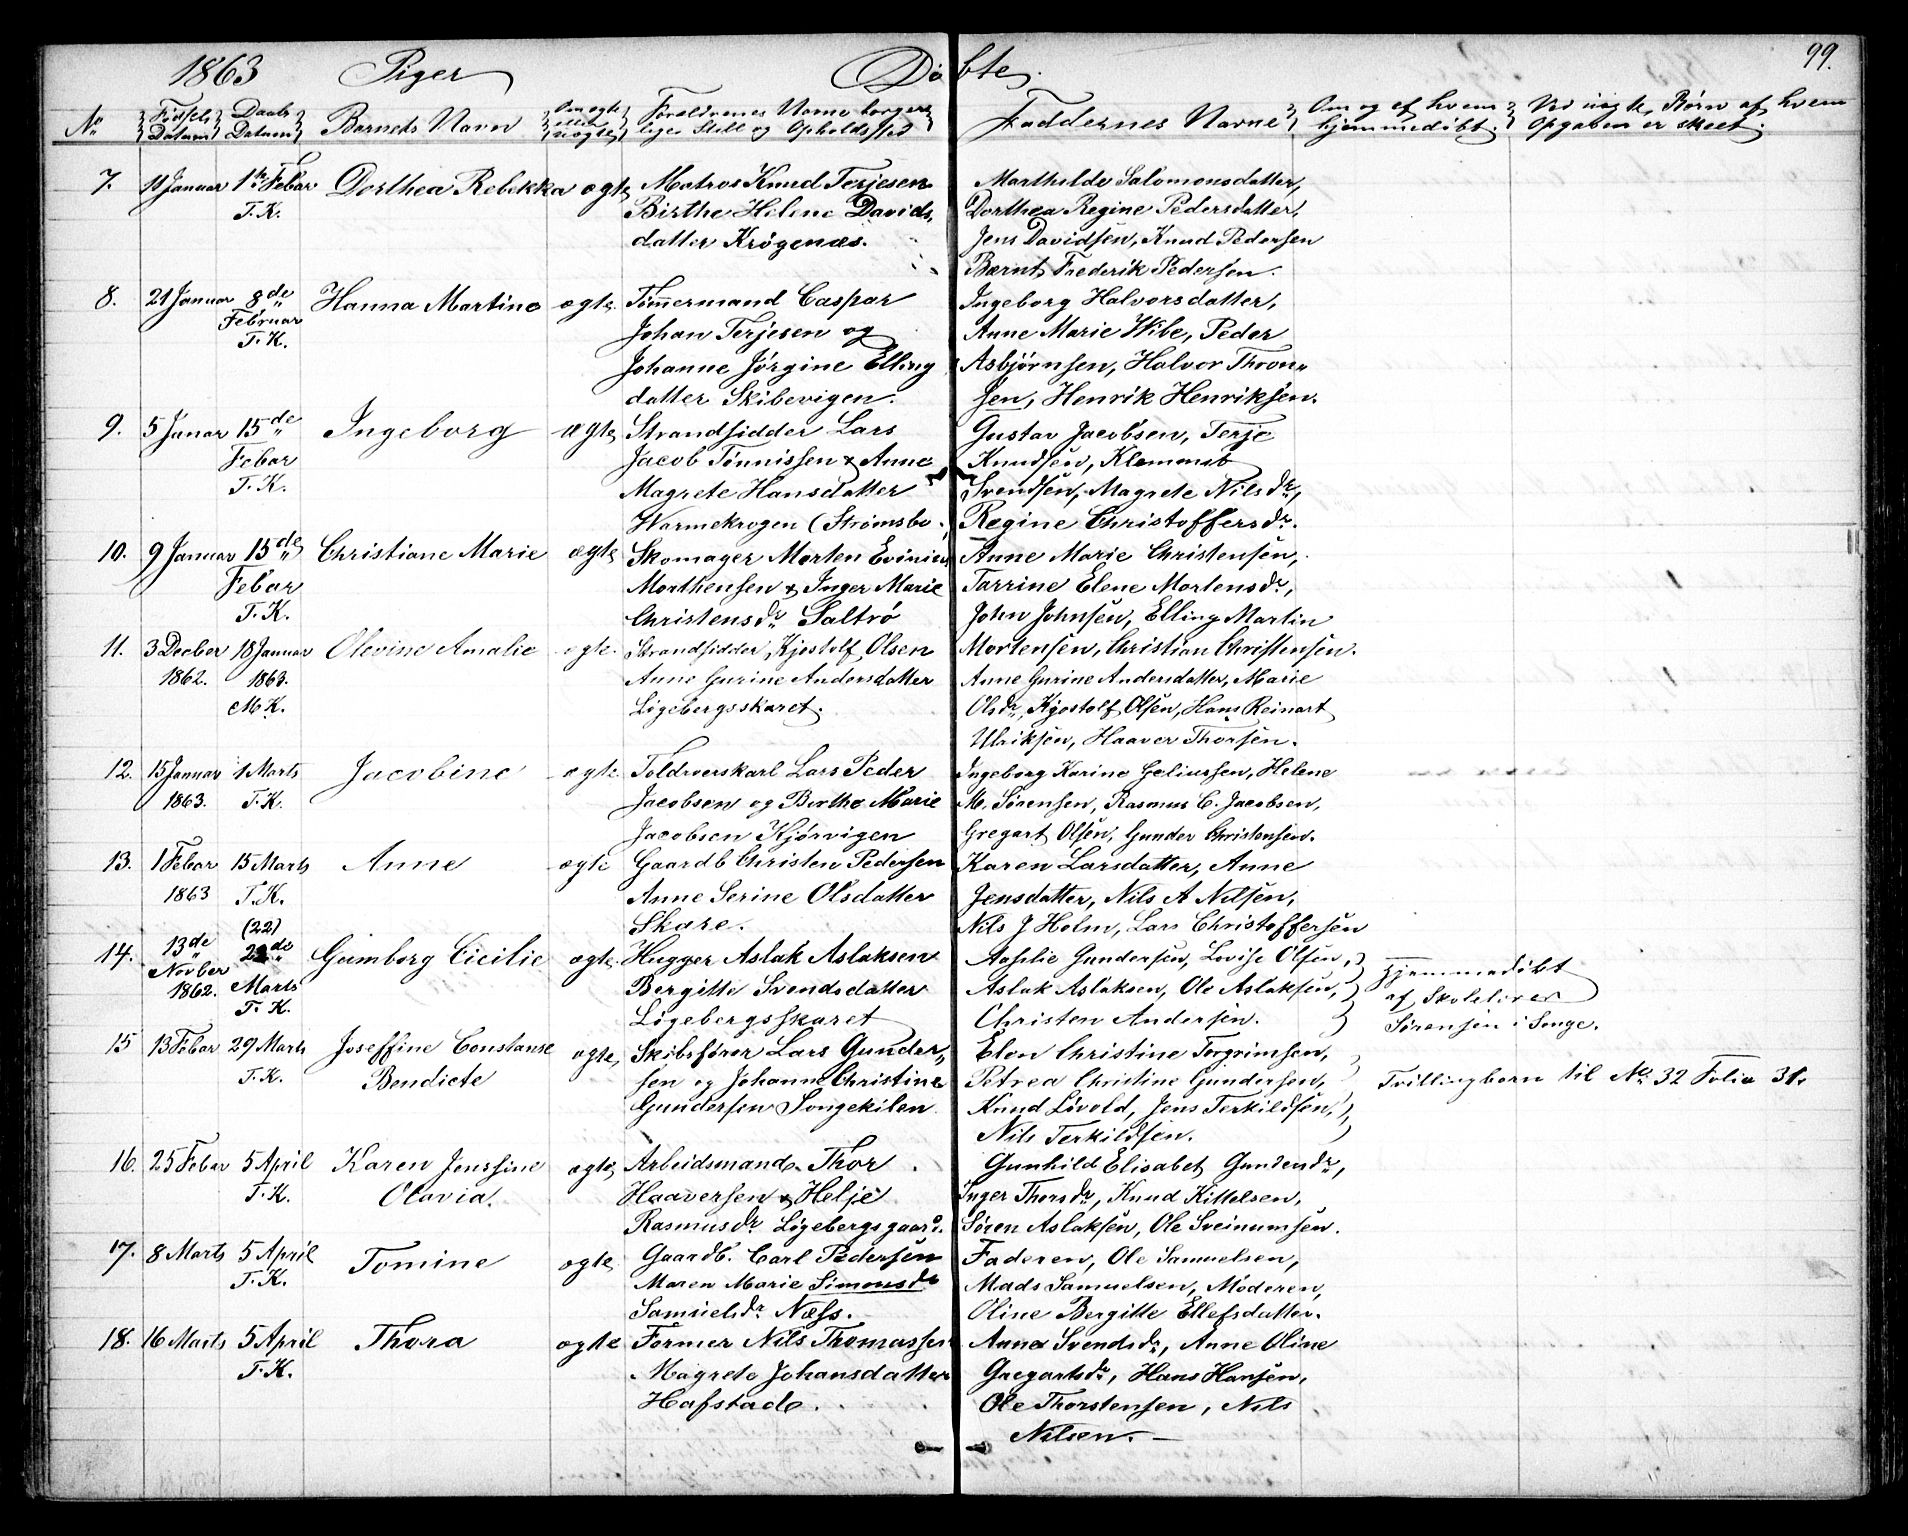 99.
1863 Piger Døbte.
No Fødsels Datum Daabs Datum Barnets Navn Om ægte eller uægte Forældrenes Navne borgerlige Still og Opholdssted Faddernes Navne Om og af hvem hjemmedöbt. Ved uægte Børn af hvem Opgaven er skeet.
7. 11 Januar 1ste Febar Dorthea Rebekka ægte Matros Knud Terjesen Marthilde Salomonsdatter,
T. K. Birthe Helene Davids, Dorthea Regine Pedersdatter,
datter Krögenæs. Jens Davidsen, Knud Pedersen
Bærnt Frederik Pedersen.
8. 21 Januar 8de Hanna Martine ægte. Tømmermand Caspar Ingeborg Halvorsdatter,
Februar Johan Terjesen og Anne Marie Wibe, Peder
T. K. Johanne Jörgine Elling Asbjörnsen, Halvor Thom„
datter Skibevigen. sen, Henrik Henriksen.
9. 5 Janar 15de Ingeborg ægte, Strandsidder Lars Gustav Jacobsen, Terje
Febar Jacob Tönnissen & Anne Knudsen, Klemmet
T. K. Magrete Hansdatter Svendsen, Magrete Nilsdr,
Warmekrogen (Strömsbo. Regine Christoffersdr.
10. 9 Januar 15de Christiane Marie ægte Skomager Morten Evinien Anne Marie Christensen,
Febar Morthensen & Inger Marie Tarrine Elene Mortensdr,
T. K. Christensdr Saltrö John Johnsen, Elling Martin
11. 3 Decber 18 Januar Olevine Amalie ægte. Strandsidder Kjøstolf Olsen Mortensen, Christian Christensen.
1862. 1863. Anne Gurine Andersdatter Anne Gurine Andersdatter, Marie
M. K. Lögebergsskaret. Olsdr, Kjøstolf Olsen, Hans Reinart
Ulriksen, Haaver Thorsen.
12. 15 Januar 1 Marts Jacobine ægte. Toldroerskarl Lars Peder Ingeborg Karine Geliussen, Helene
1863. T. K. Jacobsen og Berthe Marie M. Sörensen, Rasmus C. Jacobsen,
Jacobsen Kjörvigen Gregart Olsen, Gunder Christensen.
13. 1 Febar 15 Marts Anne ægte Gaardb Christen Pedersen Karen Larsdatter, Anne
1863 T. K. Anne Serine Olsdatter Jensdatter, Nils A Nilsen,
Skare. Nils J Holm, Lars Christoffersen
14. 13de (22) 22de Gunborg Cicilie ægte. Hugger Aslak Aslaksen Aaselie Gundersen, Lovise Olsen, Hjemmedöbt
Novber Marts Bergitte Svendsdatter Aslak Aslaksen, Ole Aslaksen, af Skolelærer
1862. T. K. Lögebergsskaret Christen Andersen. Sörensen i Songe.
15 13 Febar 29 Marts Joseffine Constanse ægte, Skibsförer Lars Gunder„ Elen Christine Torgrimsen,
T. K. Bendicte sen og Johanne Christine Petrea Christine Gundersen, Tvillingbarn til No 32 Folio 31.
Gundersen Songekilen. Knud Lövold, Jens Terkildsen,
Nils Terkildsen.
16. 25 Febar 5 April Karen Jenssine ægte, Arbeidsmand Thor Gunhild Elisabet Gundersdr,
T. K. Olavia. Haaversen & Helje Inger Thorsdr, Knud Kittelsen,
Rasmusdr Lögebergsgaard. Sören Aslaksen, Ole Sveinumsen.
17. 8 Marts 5 April Tomine ægte, Gaardb. Carl Pedersen Faderen, Ole Samuelsen,
T. K. Maren Marie Simonsdr Mads Samuelsen, Moderen,
Samuelsdr Næss. Oline Bergitte Ellefsdatter.
18. 16 Marts 5 April Thora ægte Former Nils Thomassen Anna Svendsdr, Anne Oline
T. K. Magrete Johansdatter Gregartsdr, Hans Hansen,
Hafstad. Ole Thorstensen, Nils
Nilsen.